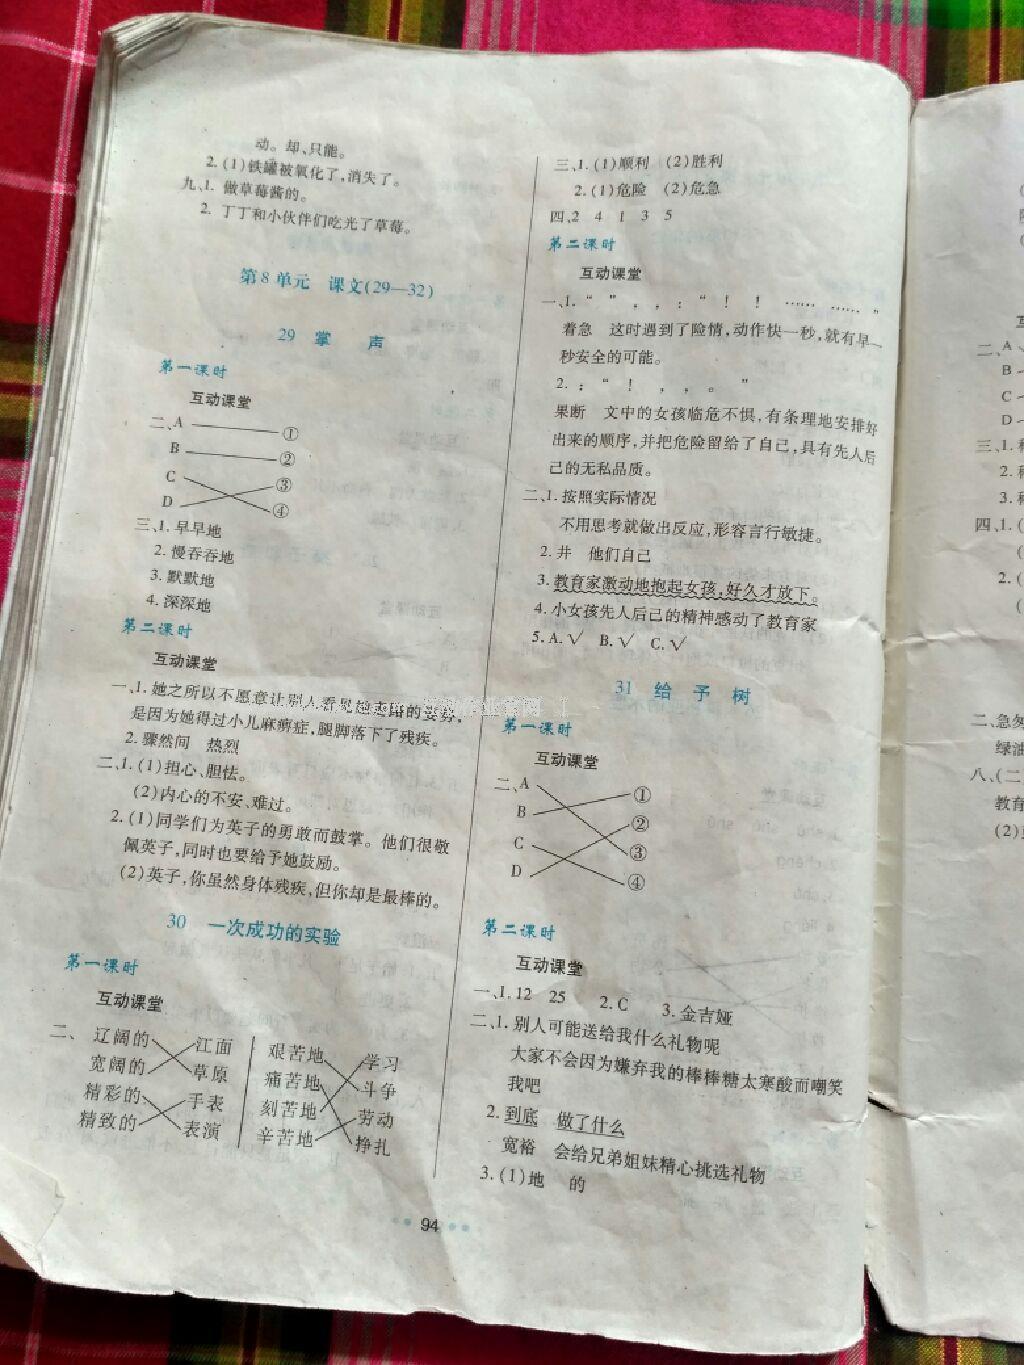 动。却、只能。
2. (1)铁罐被氧化了,消失了。
九、1. 做草莓酱的。
2. 丁丁和小伙伴们吃光了草莓。
第8单元 课文(29—32)
29 掌 声
第一课时
互动课堂
二、A ①
B ②
C ③
D ④
三、1. 早早地
2. 慢吞吞地
3. 默默地
4. 深深地
第二课时
互动课堂
一、1. 她之所以不愿意让别人看见她走路的姿势,
是因为她得过小儿麻痹症,腿脚落下了残疾。
2. 骤然间 热烈
二、1. (1)担心、胆怯。
(2)内心的不安、难过。
2. (1)同学们为英子的勇敢而鼓掌。他们很敬
佩英子,同时也要给予她鼓励。
(2)英子,你虽然身体残疾,但你却是最棒的。
30 一次成功的实验
第一课时
互动课堂
二、 辽阔的 江面 艰苦地 学习
宽阔的 草原 痛苦地 斗争
精彩的 手表 刻苦地 劳动
精致的 表演 辛苦地 挣扎
三、1. (1)顺利 (2)胜利
2. (1)危险 (2)危急
四、2 4 1 3 5
第二课时
互动课堂
一、1. “ ” , , : “ ! ! …… …… ”
着急 这时遇到了险情,动作快一秒,就有早一
秒安全的可能。
2. : “ ! , , 。 ”
果断 文中的女孩临危不惧,有条理地安排好
出来的顺序,并把危险留给了自己,具有先人后
己的无私品质。
二、1. 按照实际情况
不用思考就做出反应,形容言行敏捷。
2. 井 他们自己
3. 教育家激动地抱起女孩,好久才放下。
4. 小女孩先人后己的精神感动了教育家
5. A. √ B. √ C. √
31 给 予 树
第一课时
互动课堂
二、A ①
B ②
C ③
D ④
第二课时
互动课堂
一、1. 12 25 2. C 3. 金吉娅
二、1. 别人可能送给我什么礼物呢
大家不会因为嫌弃我的棒棒糖太寒酸而嘲笑
我吧
2. 到底 做了什么
宽裕 会给兄弟姐妹精心挑选礼物
3. (1)地 的
94
二、A
B
C
D
三、1.
2.
3.
四、1. (
2. (
二、急匆
绿油
八、(二
教育
(2)